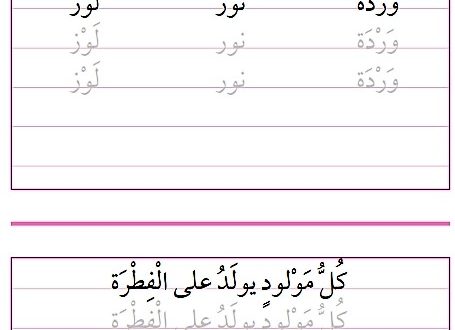 وردة نور لوز
وَرْدَة نور لَوْز
وَرْدَة نور لَوْز
كُلُّ مَوْلودٍ يولَدُ على الْفِطْرَة
كُلُّ مَوْلودٍ يولَدُ على الْفِطْرَة